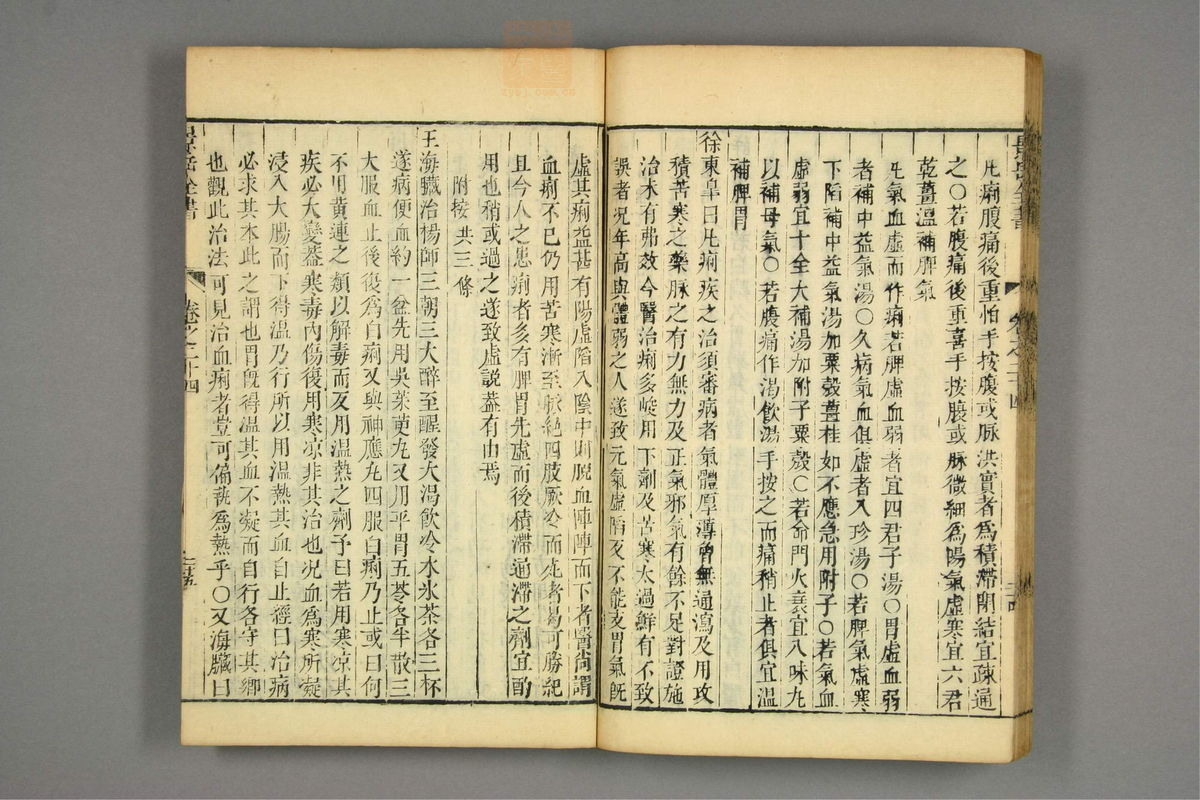 凡痢腹痛後重怕手按腹或脉洪實者爲積滯閉結宜疎通
之○若腹痛後重喜手按腹或脉微細爲陽氣虛寒宜六君
乾薑溫補脾氣
凡氣血虛而作痢若脾虛血弱者宜四君子湯○胃虛血弱
者補中益氣湯○久病氣血俱虛者八珍湯○若脾氣虛寒
下陷補中益氣湯加粟殼薑桂如不應急用附子○若氣血
虛弱宜十全大補湯加附子粟殼○若命門火衰宜八味丸
以補母氣○若腹痛作渴飲湯手按之而痛稍止者俱宜溫
補脾胃
徐東皐曰凡痢疾之治須審病者氣體厚薄曾無通瀉及用攻
積苦寒之藥脉之有力無力及正氣邪氣有餘不足對證施
治未有弗效今醫治痢多峻用下劑及苦寒太過鮮有不致
誤者况年高與體弱之人遂致元氣虛陷反不能支胃氣旣
虛其痢益甚有陽虛陷入陰中則脫血陣陣而下者醫尚謂
血痢不已仍用苦寒漸至脉絕四肢厥冷而死者曷可勝紀
且今人之患痢者多有脾胃先虛而後積滯通滯之劑宜酌
用也稍或過之遂致虛說蓋有由焉
附按 共三條
王海臟治楊師三朝三大醉至醒發大渴飲冷水氷茶各三杯
遂病便血約一盆先用吳茱萸丸又用平胃五苓各半散三
大服血止後復爲白痢又與神應丸四服白痢乃止或曰何
不用黄連之類以解毒而反用溫熱之劑予曰若用寒凉其
疾必大變蓋寒毒內傷復用寒凉非其治也况血爲寒所凝
浸入大腸而下得溫乃行所以用溫熱其血自止經曰治病
必求其本此之謂也胃旣得溫其血不凝而自行各守其鄉
也觀此治法可見治血痢者豈可偏執爲熱乎○又海臟曰
景岳全書
卷之二十四